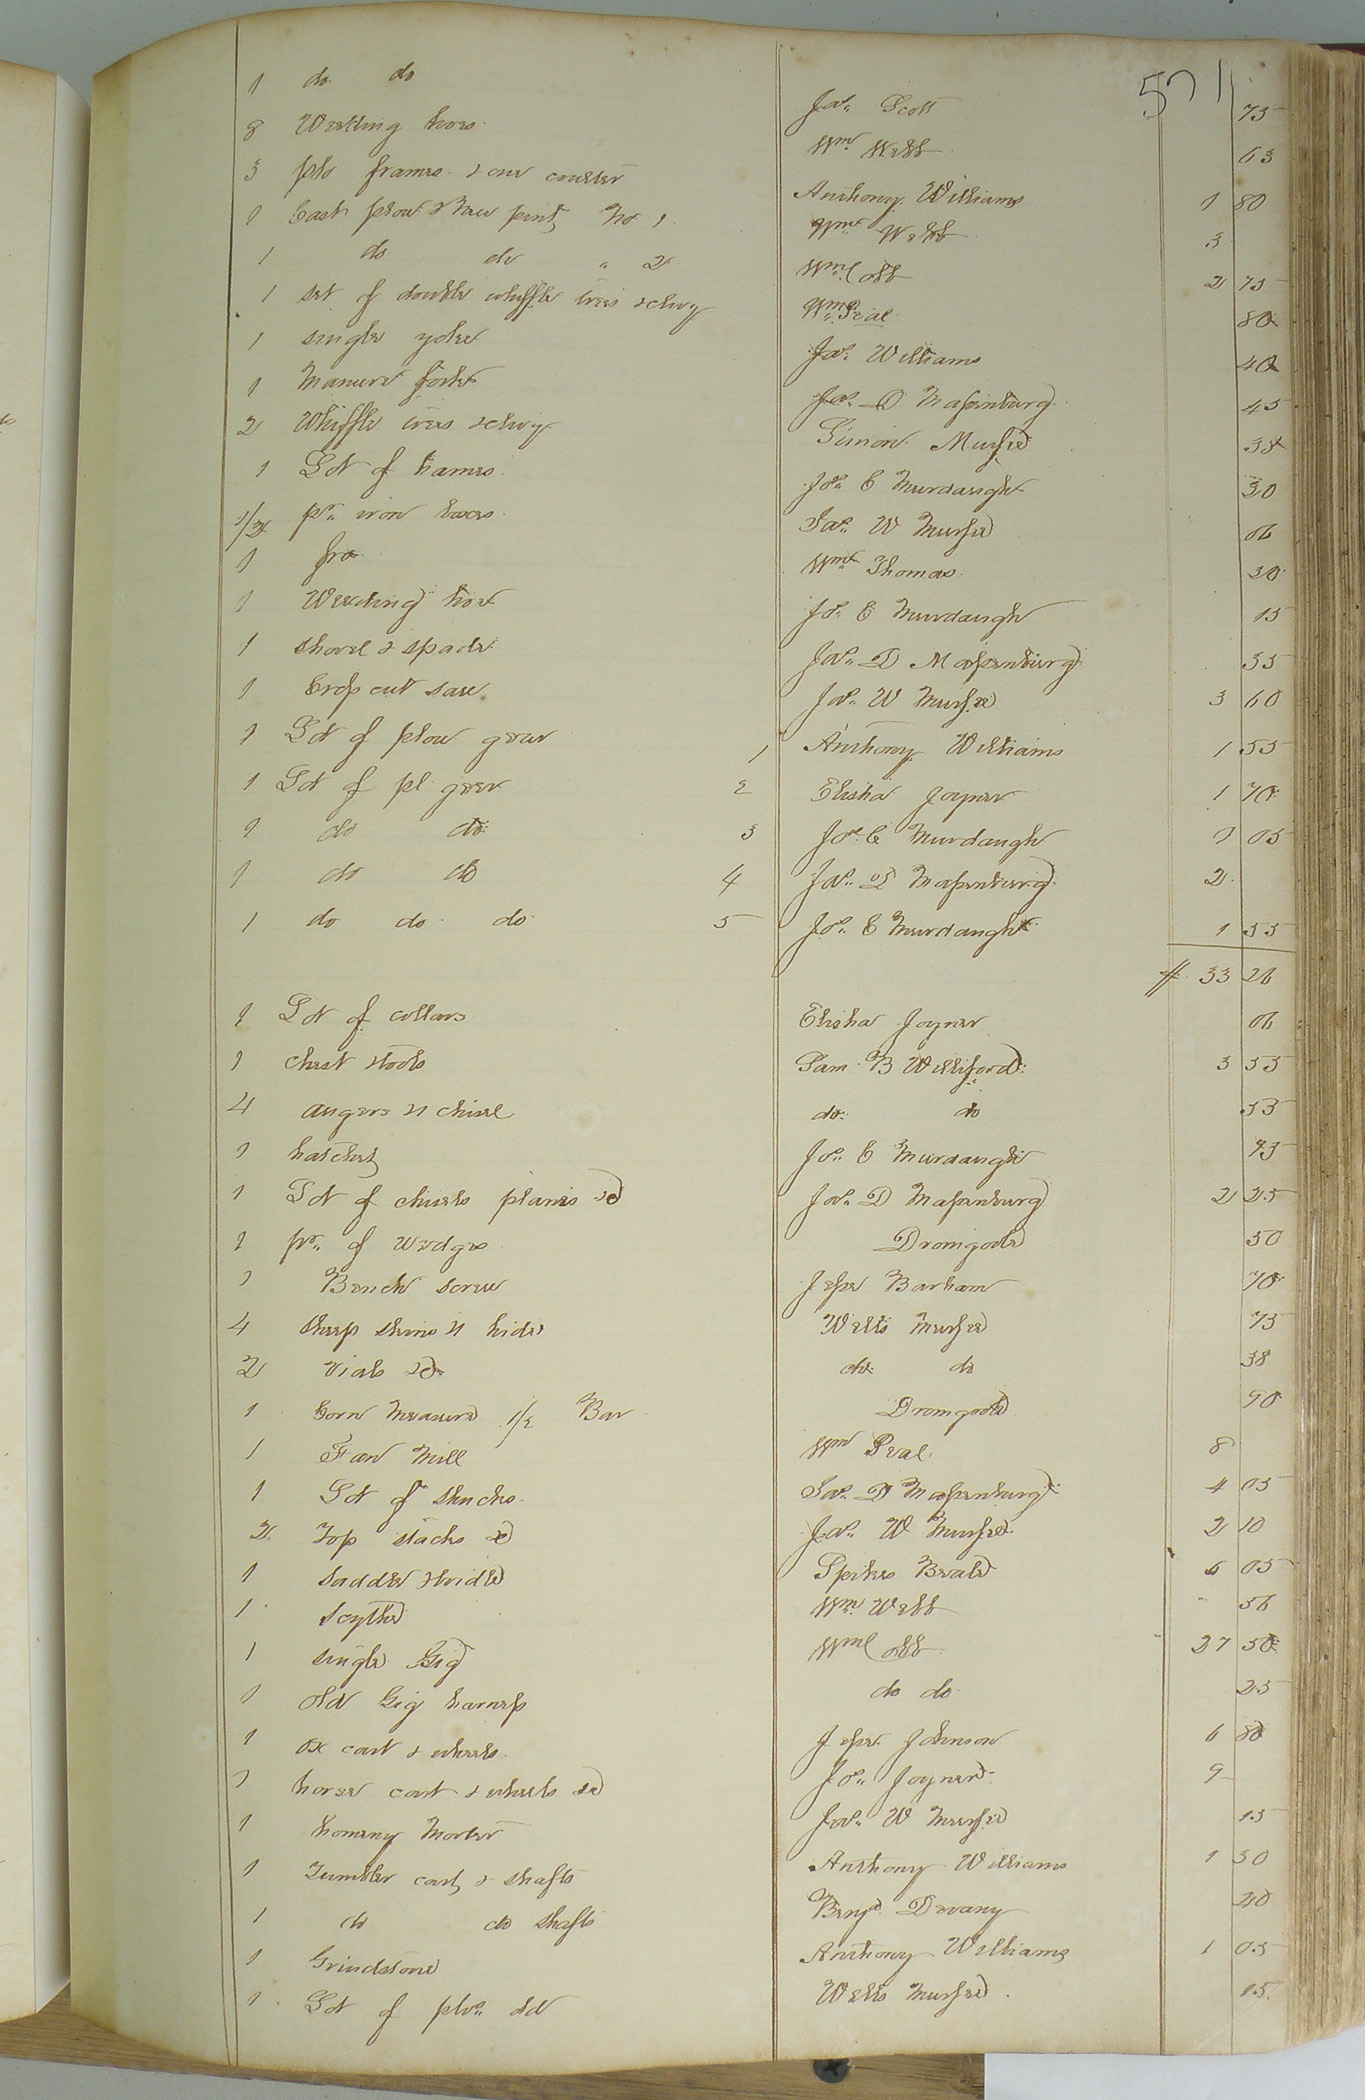 571
1 do do Jas. Scott 75
8 Weeding hoes Wm Webb 63
3 plo frames & one coulter Anthony Williams 1 80
1 Cast plow & new point No 1 Wm Webb 3
1 do do " 2 Wm Cobb 2 75
1 set of double whiffle trees & clevy Wm Peal 80
1 single yoke Jas. Williams 40
1 Manure fork Jas. D Massenburg 45
2 Whiffle trees & clevy Simon Murfee 35
1 Lot of hames Jos. E Murdaugh 30
1/2 pr. iron boxes Jas. W Murfee 06
1 fro Wm Thomas 30
1 Weeding hoe Jos. E Murdaugh 15
1 shovel & spade Jas. D Massenburg 55
1 Cross cut saw Jas. W Murfee 3 60
1 Lot of plow gear 1 Anthony Williams 1 55
1 Lot of pl gear 2 Elisha Joyner 1 70
1 do do 3 Jos. E Murdaugh 1 05
1 do do 4 Jas. D Massenburg 2
1 do do do 5 Jos. E Murdaugh 1 55
$ 33 26
1 Lot of collars Elisha Joyner 06
1 chest & tools Sam B Williford 3 55
4 augers & 1 chisel do do 55
1 hatchet Jos. E Murdaugh 75
1 Lot of chisels planes &c Jas. D Massenburg 2 25
1 pr. of wedges Dromgoole 50
1 Bench screw Jesse Barham 70
4 sheep skins & 1 hide Wells Murfee 75
2 vials &c do do 38
1 Corn Measure 1/2 Bar Dromgoole 90
1 Fan Mill Wm Peal 8
1 Lot of shucks Jas. D Massenburg 4 05
2 Top stacks &c Jas. W Murfee 2 10
1 saddle & bridle Spikes Beale 6 05
1 scythe Wm Webb 56
1 single Gig Wm Cobb 27 50
1 old Gig harness do do 25
1 ox cart & wheels Jesse Johnson 6 80
1 horse cart & wheels &c Jos. Joyner 9
1 homany Morter Jas. W Murfee 15
1 Tumbler cart & shafts Anthony Williams 1 50
1 do do shafts Benj. Devany 20
1 Grindstone Anthony Williams 1 05
1 Lot of plos. old Wells Murfee 15